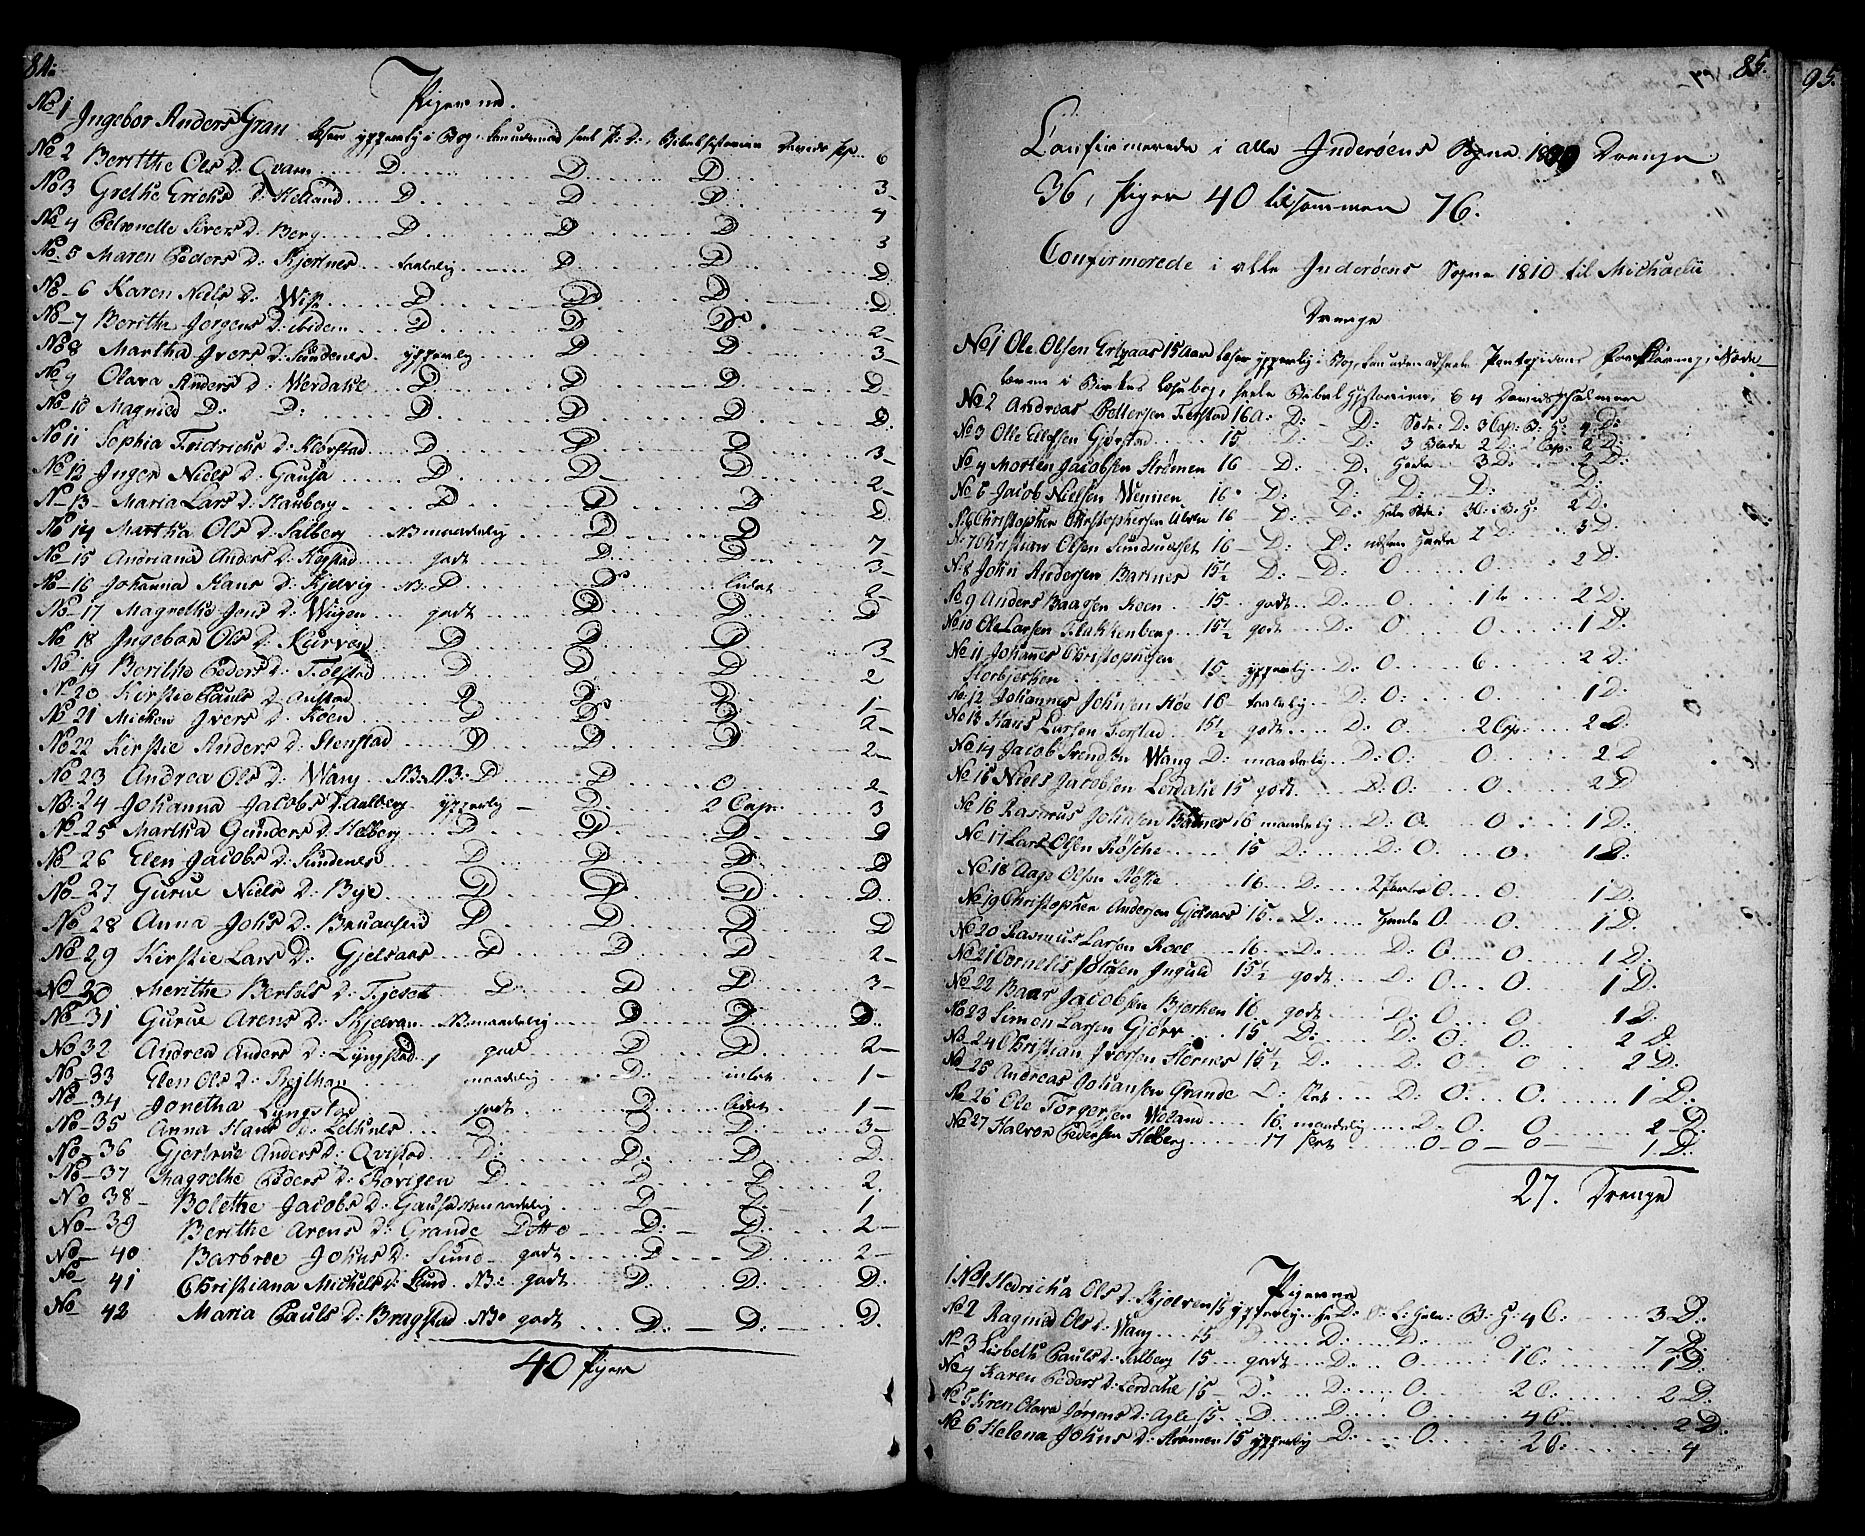 84.
Pigerne.
No 1 Ingebor Anders Gran læser ypperlig i Bog, kan udenad heel P: D:, Bibelhistorien Davids Ps. 6
No 2 Berithe Ols D: Qvam D D D 3
No 3 Grethe Erichs D: Helland D D D 4
No 4 Petronelle Sivers D: Berg D D D 3
No 5 Maren Peders D: Hjertnes taalelig D D D
No 6 Karen Niels D: Wist D D D D
No 7 Berithe Jørgens D: ibidem D D D 2
No 8 Martha Ivers D: Sundenes ypperlig D D 3
No 9 Olava Anders D: Werdahl D D D D
No 10 Magnild D: D: D D D D
No 11 Sophia Fridrichs D: Klørstad D D D 3
No 12 Inger Niels D: Gausa D D D 2
No 13 Maria Lars D: Hauberg D D D D
No 14 Martha Ols D: Salberg NB maadelig D D 7
No 15 Andriana Anders D: Kopstad godt D D 3
No 16 Johanna Hans D: Kjelvig NB: D D lidet 2
No 17 Magrethe Jens D: Wiigen godt D D D
No 18 Ingebor Ols D: Kurven D D D 3
No 19 Berithe Peders D: Tølstad D D D 2
No 20 Kirstie Pauls D: Austad D D D 1
No 21 Micken Ivers D: Koen D D D 2
No 22 Kirstie Anders D: Stenstad D D D 2
No 23 Andrea Ols D: Wang NB: NB: D D 0 2
No 24 Johanna Jacobs D: Aalberg ypperlig D 2 Cap: 3
No 25 Martha Gunders D: Helberg D D D D
No 26 Elen Jacobs D: Sundenes D D D D
No 27 Gurue Niels D: Bye D D D D
No 28 Anna Johs D: Bruaasted D D D D
No 29 Kirstie Lars D: Gjelsaas D D D 2
No 30 Merithe Bertels D: Tjeset D: D D 3
No 31 Gurue Arens D: Skjelvan NB maadelig D D D
No 32 Andrea Anders D: Lyngstad godt D D 2
No 33 Elen Ols D: Rejlhan maadelig D: intet 1
No 34 Jonetha Lyngstad godt D lidet 1
No 35 Anna Hans D: Letnes D: D D 3
No 36 Gjertrue Anders D: Qvistad D: D: D D:
No 37 Magrethe Peders D: Røvigen D D D 2
No 38 Bolethe Jacobs D: Gausa maadelig D D 1
No 39 Berithe Arens D: Grande Ditto D: D: 2
No 40 Barbroe Johns D: Sund godt D D 2
No 41 Christiana Michels D: Sund NB: godt D: D: D:
No 42 Maria Pauls D: Bragstad NB: godt D: D: D:
40 Piger
85.
95.
Confirmerede i alle Inderøens Sogne 1809 Drenge
36, Piger 40 tilsammen 76.
Confirmerede i alle Inderøens Sogne 1810 til Michaeli
Drenge
No 1 Ole Olsen Ertgaas 15 Aar læser ypperlig i Bog, kan udenad heele Pontopidans Forklaring, Nøde
lære i Birkes Læsebog, heele Bibel Historien, 6 4 Davids Psalmer
No 2 Andreas Pettersen Ferstad 16 A: D: D: Nøde: D: 3 Cap: B: H: 4 D:
No 3 Olle Ellefsen Gjørstad 15 D: D: 3 Blade 2 D: Cap: 2 D:
No 4 Morten Jacobsen Strømen 16 D: D: Heele 3 D: 2 D:
No 5 Jacob Nielsen Wennen 16 D: D: D: D: D:
No 6 Christopher Christophersen Ulvin 16 D: D: Heele 3 D: B: H: 2 D:
No 7 Christian Olsen Sundnesset 16 D: D: næsten Heele 2 D: 5 D:
No 8 John Andersen Bartnes 15½ D: D: 0 0 2 D:
No 9 Anders Baarsen Koen 15 godt D: 0 2 D:
No 10 Ole Larsen Flakkenberg 15½ godt D: 0 0 1 D:
No 11 Johannes Christophersen
Storbjerken 15 ypperlig D: 0 6 2 D:
No 12 Johannes Johnsen Høe 16 taalelig D: 0: 0 1 D:
No 13 Hans Larsen Berstad 15½ godt D: 0 2 Cap: 2 D
No 14 Jacob Svendsen Wang D: maadelig D: 0: 0 2 D
No 15 Niels Jacobsen Lørdahl 15 godt D: 0: 0 2 D
No 16 Rasmus Johnsen Bartnes 16 maadelig D: 0. 0 1 D:
No 17 Lars Olsen Røsche 15 D: D: 0. 0. 1 D:
No 18 Aage Olsen Røske 16 D: 2 Parter 0. 0. 1 D:
No 19 Christopher Andersen Gjelsaas 15 D: Heele 0. 0. 1 D.
No 20 Rasmus Larsen Roel 16 D: D: 0. 0. 1 D:
No 21 Cornelis Johnsen Inguld 15½ godt D: 0. 0. 1 D.
No 22 Baar Jacobsen Bjerken 16 godt D: 0. 0. 1 D:
No 23 Simon Larsen Gjørv 15 D: D: 0: 0: 2 D:
No 24 Christian Iversen Hornes 15½ D: D: 0. 0 2 D:
No 25 Andreas Johansen Grande D: slet D: 0: 0. 1 D:
No 26 Ole Torgersen Weland 16 maadelig D: 0. 0 2 D:
No 27 Halvor Pedersen Helberg 17 slet 0 0 0 1 D:
27. Drenge
Pigerne
No 1 Hedricha Ols D: Kjelven 15 ypperlig He D: L: Heele: B: H: 4 C: 3 D:
No 2 Ragnild Ols D: Wang 15 D: D: D: 0 7 D:
No 3 Lisbeth Pauls D: Salberg 15 godt D: 0 1 C: 1 D:
No 4 Karen Peders D: Lørdahl 15 D: D: 0 2 C: 2 D:
No 5 Karen Olava Jørgens D: Agle 15 D D: 0 4 C: 2 D:
No 6 Helena Johns D: Strømen 15 ypperlig D: 0 2 C: 4